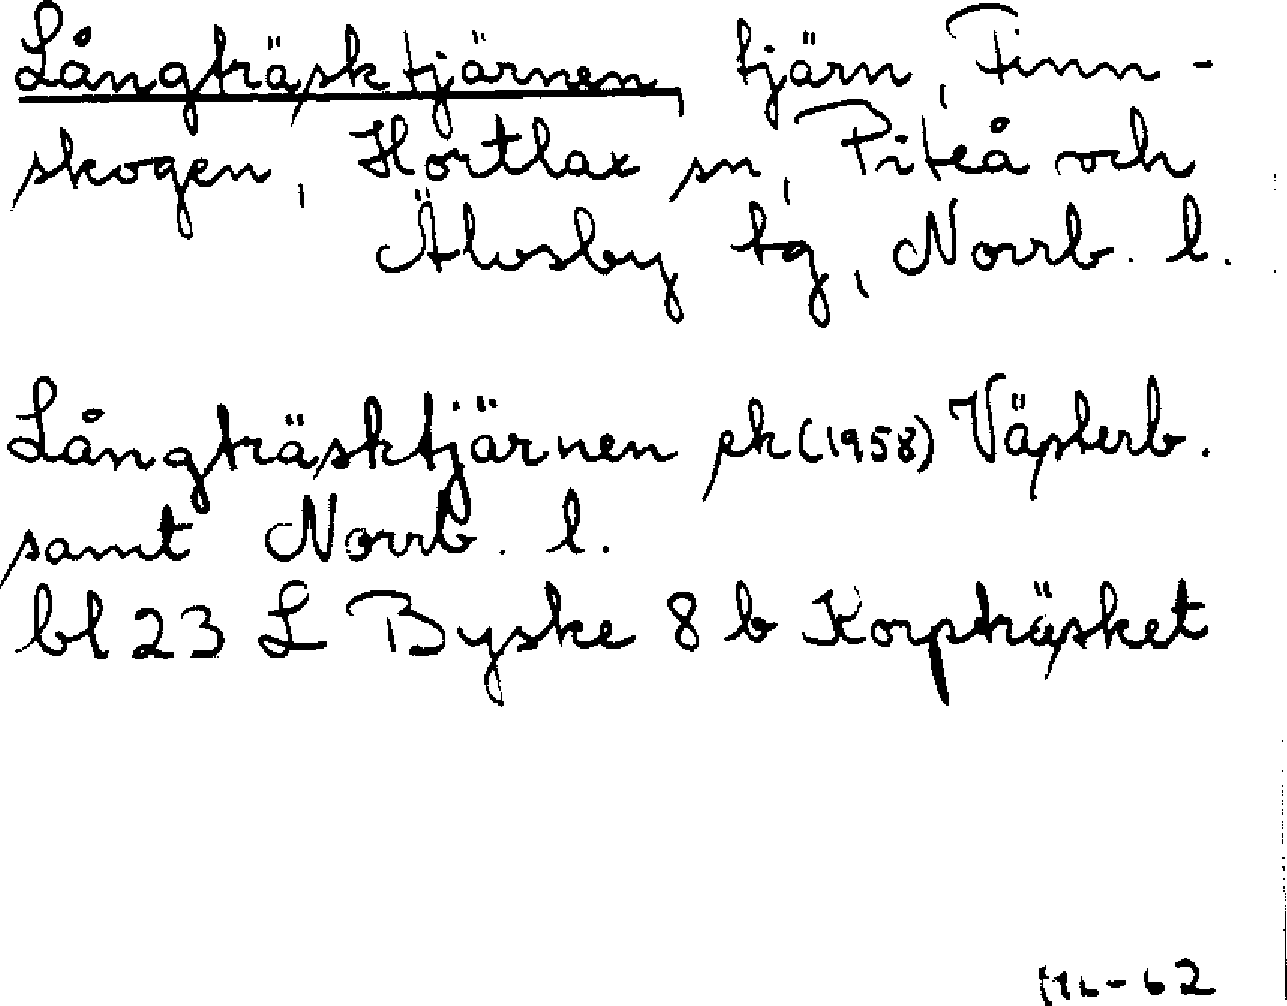 Långträsktjärnen, tjärn, Finn-
skogen, Hortlax sn, Piteå och
Älvsby tg, Norrb. l.
Långträsktjärnen ek (1958) Västerb.
samt Norrb. l.
bl 23 L Byske 8 b Korpträsket